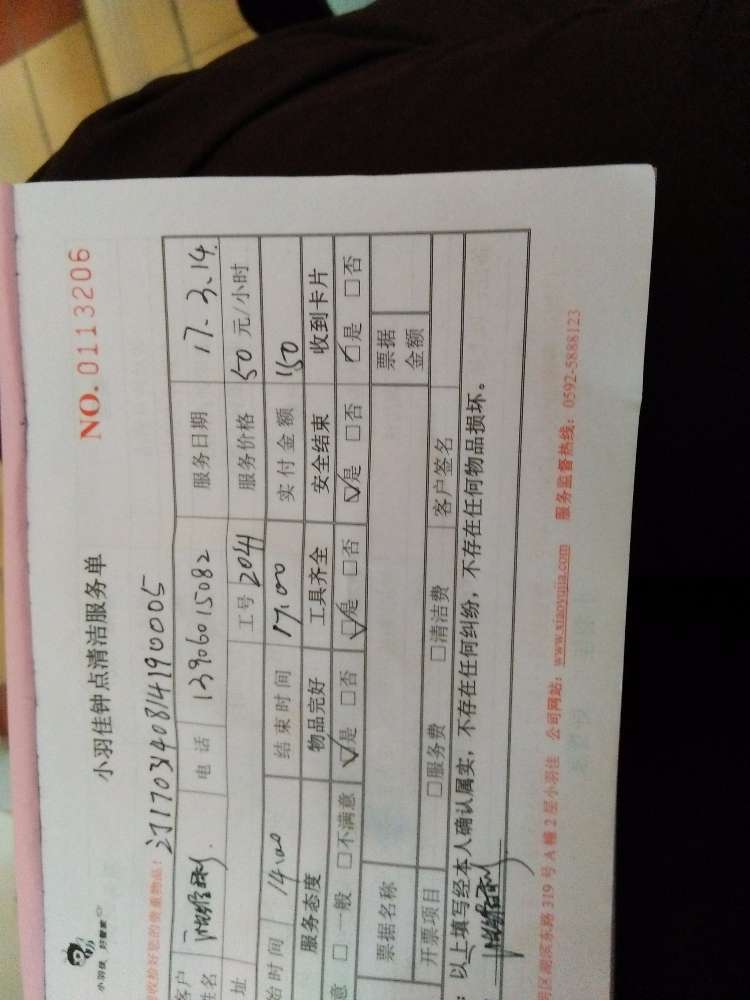 小羽佳 好管家
小羽佳钟点清洁服务单
NO. 0113206
收拾好您的贵重物品!
订1703140814190005
客户
姓名
电话 13906015082 服务日期 17.3.14.
址 工号 2041 服务价格 50 元/小时
始时间 14:00 结束时间 17:00 实付金额 150
服务态度 物品完好 工具齐全 安全结束 收到卡片
意 □ 一般 □不满意 ☑是 □否 ☑是 □否 ☑是 □否 ☑是 □否
票据名称 票据金额
开票项目 □服务费 □清洁费 客户签名
: 以上填写经本人确认属实,不存在任何纠纷,不存在任何物品损坏。
明区湖滨东路 319 号 A 幢 2 层小羽佳 公司网站: www.xiaoyujia.com 服务监督热线: 0592-5888123